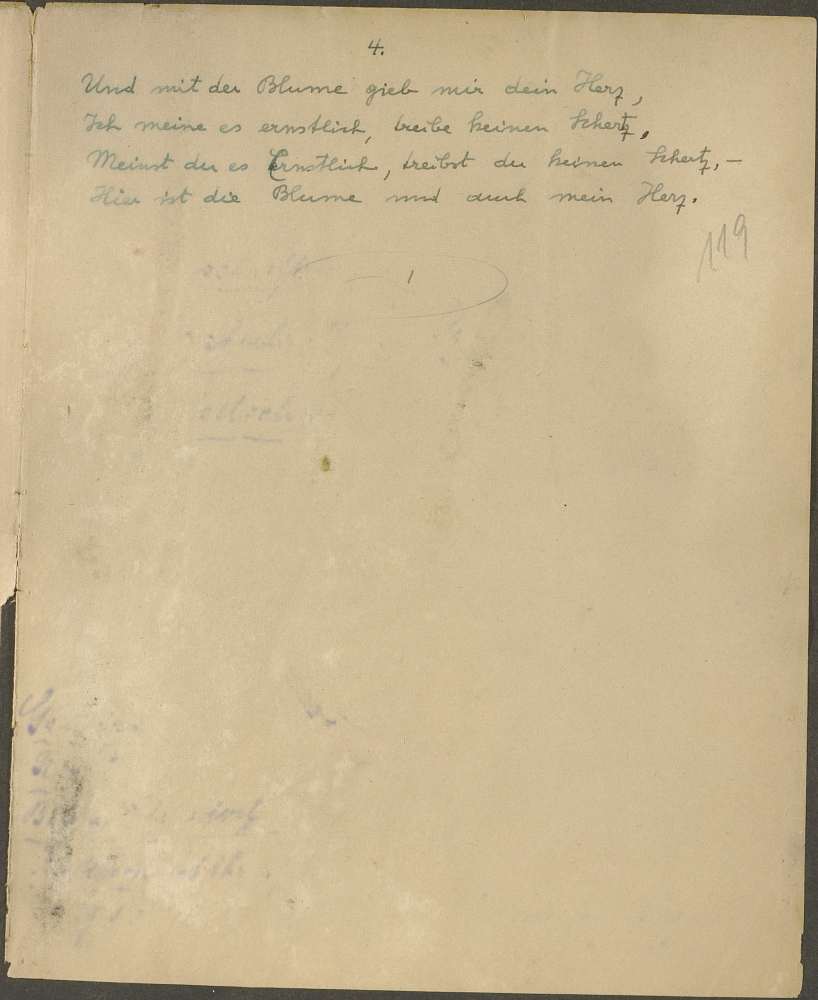 4.
Und mit der Blume gieb mir dein Herz,
Ich meine es ernstlich, treibe keinen Schertz,
Meinst du es Ernstlich, treibst du keinen Schertz, —
Hier ist die Blume und auch mein Herz.
119
1